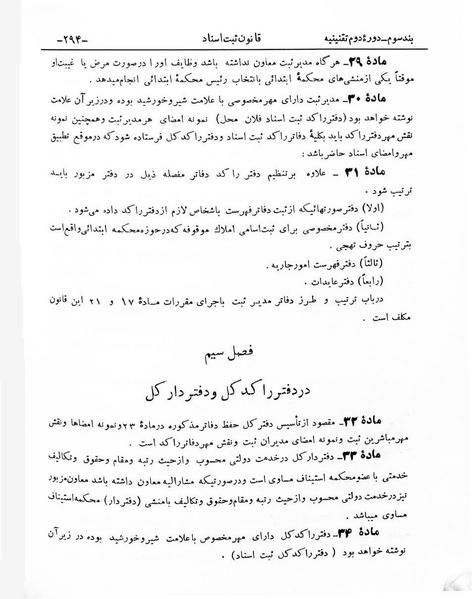 بندسوم_دورهٔ دوم تقنینیه قانون ثبت اسناد -۲۹۴-
مادهٔ ۲۹_ هرگاه مدیر ثبت معاون نداشته باشد وظایف او را درصورت مرض یا غیبت او
موقتاً یکی ازمنشی‌های محکمهٔ ابتدائی بانتخاب رئیس محکمهٔ ابتدائی انجام‌میدهد.
مادهٔ ۳۰_ مدیر ثبت دارای مهر مخصوصی با علامت شیر و خورشید بوده ودرزیر آن علامت
نوشته خواهد بود (دفتر راکد ثبت اسناد فلان محل) نمونه امضای هر مدیر ثبت وهمچنین نمونه
نقش مهر دفتر راکد باید بکلیهٔ دفاتر راکد ثبت اسناد ودفتر راکد کل فرستاده شود که درموقع تطبیق
مهر وامضای اسناد حاضر باشد:
مادهٔ ۳۱ _ علاوه برتنظیم دفتر راکد دفاتر مفصله ذیل در دفتر مزبور باید
ترتیب شود .
(اولا) دفتر صورتهائیکه ازثبت دفاتر فهرست باشخاص لازم ازدفتر راکد داده می‌شود .
(ثانیاً) دفتر مخصوصی برای ثبت اسامی املاك موقوفه که درحوزه محکمه ابتدائی واقع است
بترتیب حروف تهجی .
(ثالثاً) دفتر فهرست امور جاریه .
(رابعاً) دفتر عایدات .
درباب ترتیب و طرز دفاتر مدیر ثبت باجرای مقررات مادهٔ ۱۷ و ۲۱ این قانون
مکلف است .
فصل سیم
در دفتر راکد کل و دفتردار کل
مادهٔ ۳۲_ مقصود از تأسیس دفتر کل حفظ دفاتر مذکوره درمادهٔ ۲۳ ونمونه امضاها ونقش
مهر مباشرین ثبت ونمونه امضای مدیران ثبت ونقش مهر دفاتر راکد است .
مادهٔ ۳۳_ دفتردار کل درخدمت دولتی محسوب وازحیث رتبه ومقام وحقوق وتکالیف
خدمتی با عضو محکمه استیناف مساوی است ودرصورتیکه مشارالیه معاون داشته باشد معاون مزبور
نیز درخدمت دولتی محسوب وازحیث رتبه ومقام وحقوق وتکالیف بامنشی (دفتردار) محکمه استیناف
مساوی میباشد .
مادهٔ ۳۴_ دفتر راکد کل دارای مهر مخصوص باعلامت شیر وخورشید بوده در زیر آن
نوشته خواهد بود ( دفتر راکد کل ثبت اسناد) .